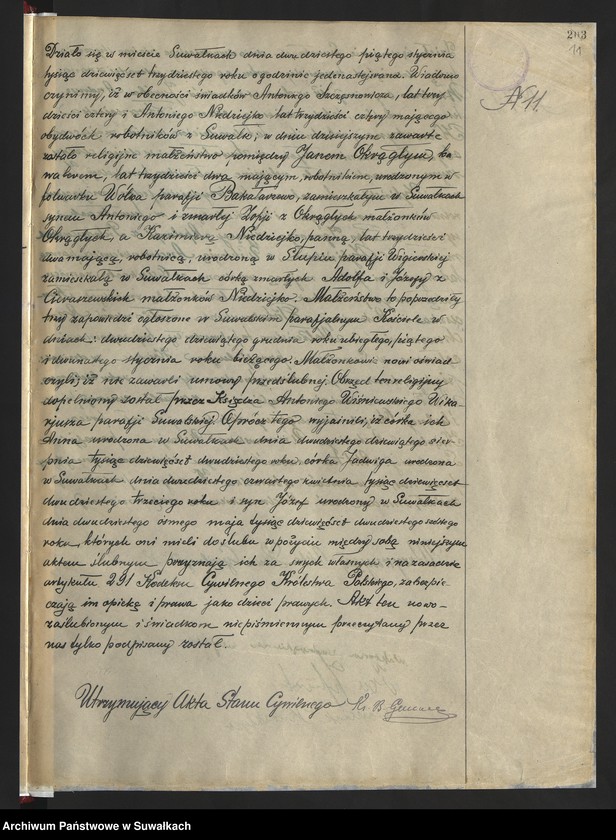 283
11
№ 11.
Działo się w mieście Suwałkach dnia dwudziestego piątego stycznia
tysiąc dziewięćset trzydziestego roku o godzinie jedenastej rano. Wiadomo
czynimy, iż w obecności świadków Antoniego Szczęsnowicza, lat trzy
dzieści cztery i Antoniego Niedziejko lat trzydzieści cztery mającego
obydwóch robotników z Suwałk; w dniu dzisiejszym zawarte
zostało religijne małżeństwo pomiędzy Janem Okrągłym, ka
walerem, lat trzydzieści dwa mającym, robotnikiem, urodzonym w
folwarku Wólka parafji Bakałarzewo, zamieszkałym w Suwałkach
synem Antoniego i zmarłej Zofji z Okrągłych małżonków
Okrągłych, a Kazimierą Niedziejko, panną, lat trzydzieści
dwa mającą, robotnicą, urodzoną w Słupiu parafji Wigierskiej
zamieszkałą w Suwałkach córką zmarłych Adolfa i Józefy z
małżonków Niedziejko. Małżeństwo to poprzedziły
trzy zapowiedzi ogłoszone w Suwalskim parafjalnym Kościele w
dniach: dwudziestego dziewiątego grudnia roku ubiegłego, piątego
i dwunastego stycznia roku bieżącego. Małżonkowie nowi oświad
czyli, iż nie zawarli umowy przedślubnej. Obrzęd ten religijny
dopełniony został przez Księdza Antoniego Wiśniewskiego Wika
rjusza parafji Suwalskiej Oprócz tego wyjaśnili, iż córka ich
Anna urodzona w Suwałkach dnia dwudziestego dziewiątego sier
pnia tysiąc dziewięćset dwudziestego roku, córka Jadwiga urodzona
w Suwałkach dnia dwudziestego czwartego kwietnia tysiąc dziewięćset
dwudziestego trzeciego roku i syn Józef urodzony w Suwałkach
dnia dwudziestego ósmego maja tysiąc dziewięćset dwudziestego szóstego
roku, których oni mieli do ślubu w pożyciu między sobą niniejszym
aktem ślubnym przyznają ich za swych własnych i na zasadzie
artykułu 291 Kodeksu Cywilnego Królestwa Polskiego, zabezpie-
czają im opiekę i prawa jako dzieci prawych. Akt ten nowo-
zaślubionym i świadkom niepiśmiennym przeczytany przez
nas tylko podpisany został.
Utrzymujący Akta Stanu Cywilnego Ks. B.
Archiwum Państwowe w Suwałkach